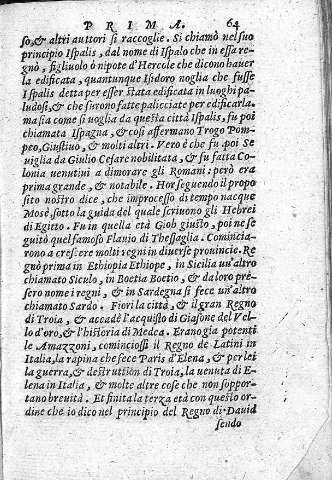 PRIMA. 64
so, & altri auttori si raccoglie. Si chiamò nel suo
principio Ispalis, dal nome di Ispalo che in essa re-
gnò, figliuolo ò nipote d'Hercole che dicono hauer
la edificata, quantunque Isidoro uoglia che fusse
Ispalis detta per esser stata edificata in luoghi pa-
ludosi, & che furono fatte palicciate per edificarla.
ma sia come si uoglia da questa città Ispalis, fu poi
chiamata Ispagna, & così affermano Trogo Pom-
peo, Giustiuo, & molti altri. Vero è che fu poi Se
uiglia da Giulio Cesare nobilitata, & fu fatta Co-
lonia uenutini a dimorare gli Romani: però era
prima grande, & notabile. Hor seguendo il propo
sito nostro dico, che in processo di tempo nacque
Mosè, sotto la guida del quale scriuono gli Hebrei
di Egitto. Fu in quella età Giob giusto, poi ne se
guitò quel famoso Flauio di Thessaglia. Comincia-
rono a crescere molti regni in diuerse prouincie. Re
gnò prima in Ethiopia Ethiope, in Sicilia un'altro
chiamato Siculo, in Boetia Boetio, & da loro pre-
sero nome i regni, & in Sardegna si fece un'altro
chiamato Sardo. Fiorì la città, & il gran Regno
di Troia, & accadè l'acquisto di Giasone del Vel-
lo d'oro, & l'historia di Medea. Erano già potenti
le Amazzoni, cominciossi il Regno de Latini in
Italia, la rapina che fece Paris d'Elena, & per lei
la guerra, & destruttion di Troia, la uenuta di E-
lena in Italia, & molte altre cose che non soppor-
tano breuità. Et finita la terza età con questo or-
dine che io dico nel principio del Regno di Dauid
sendo